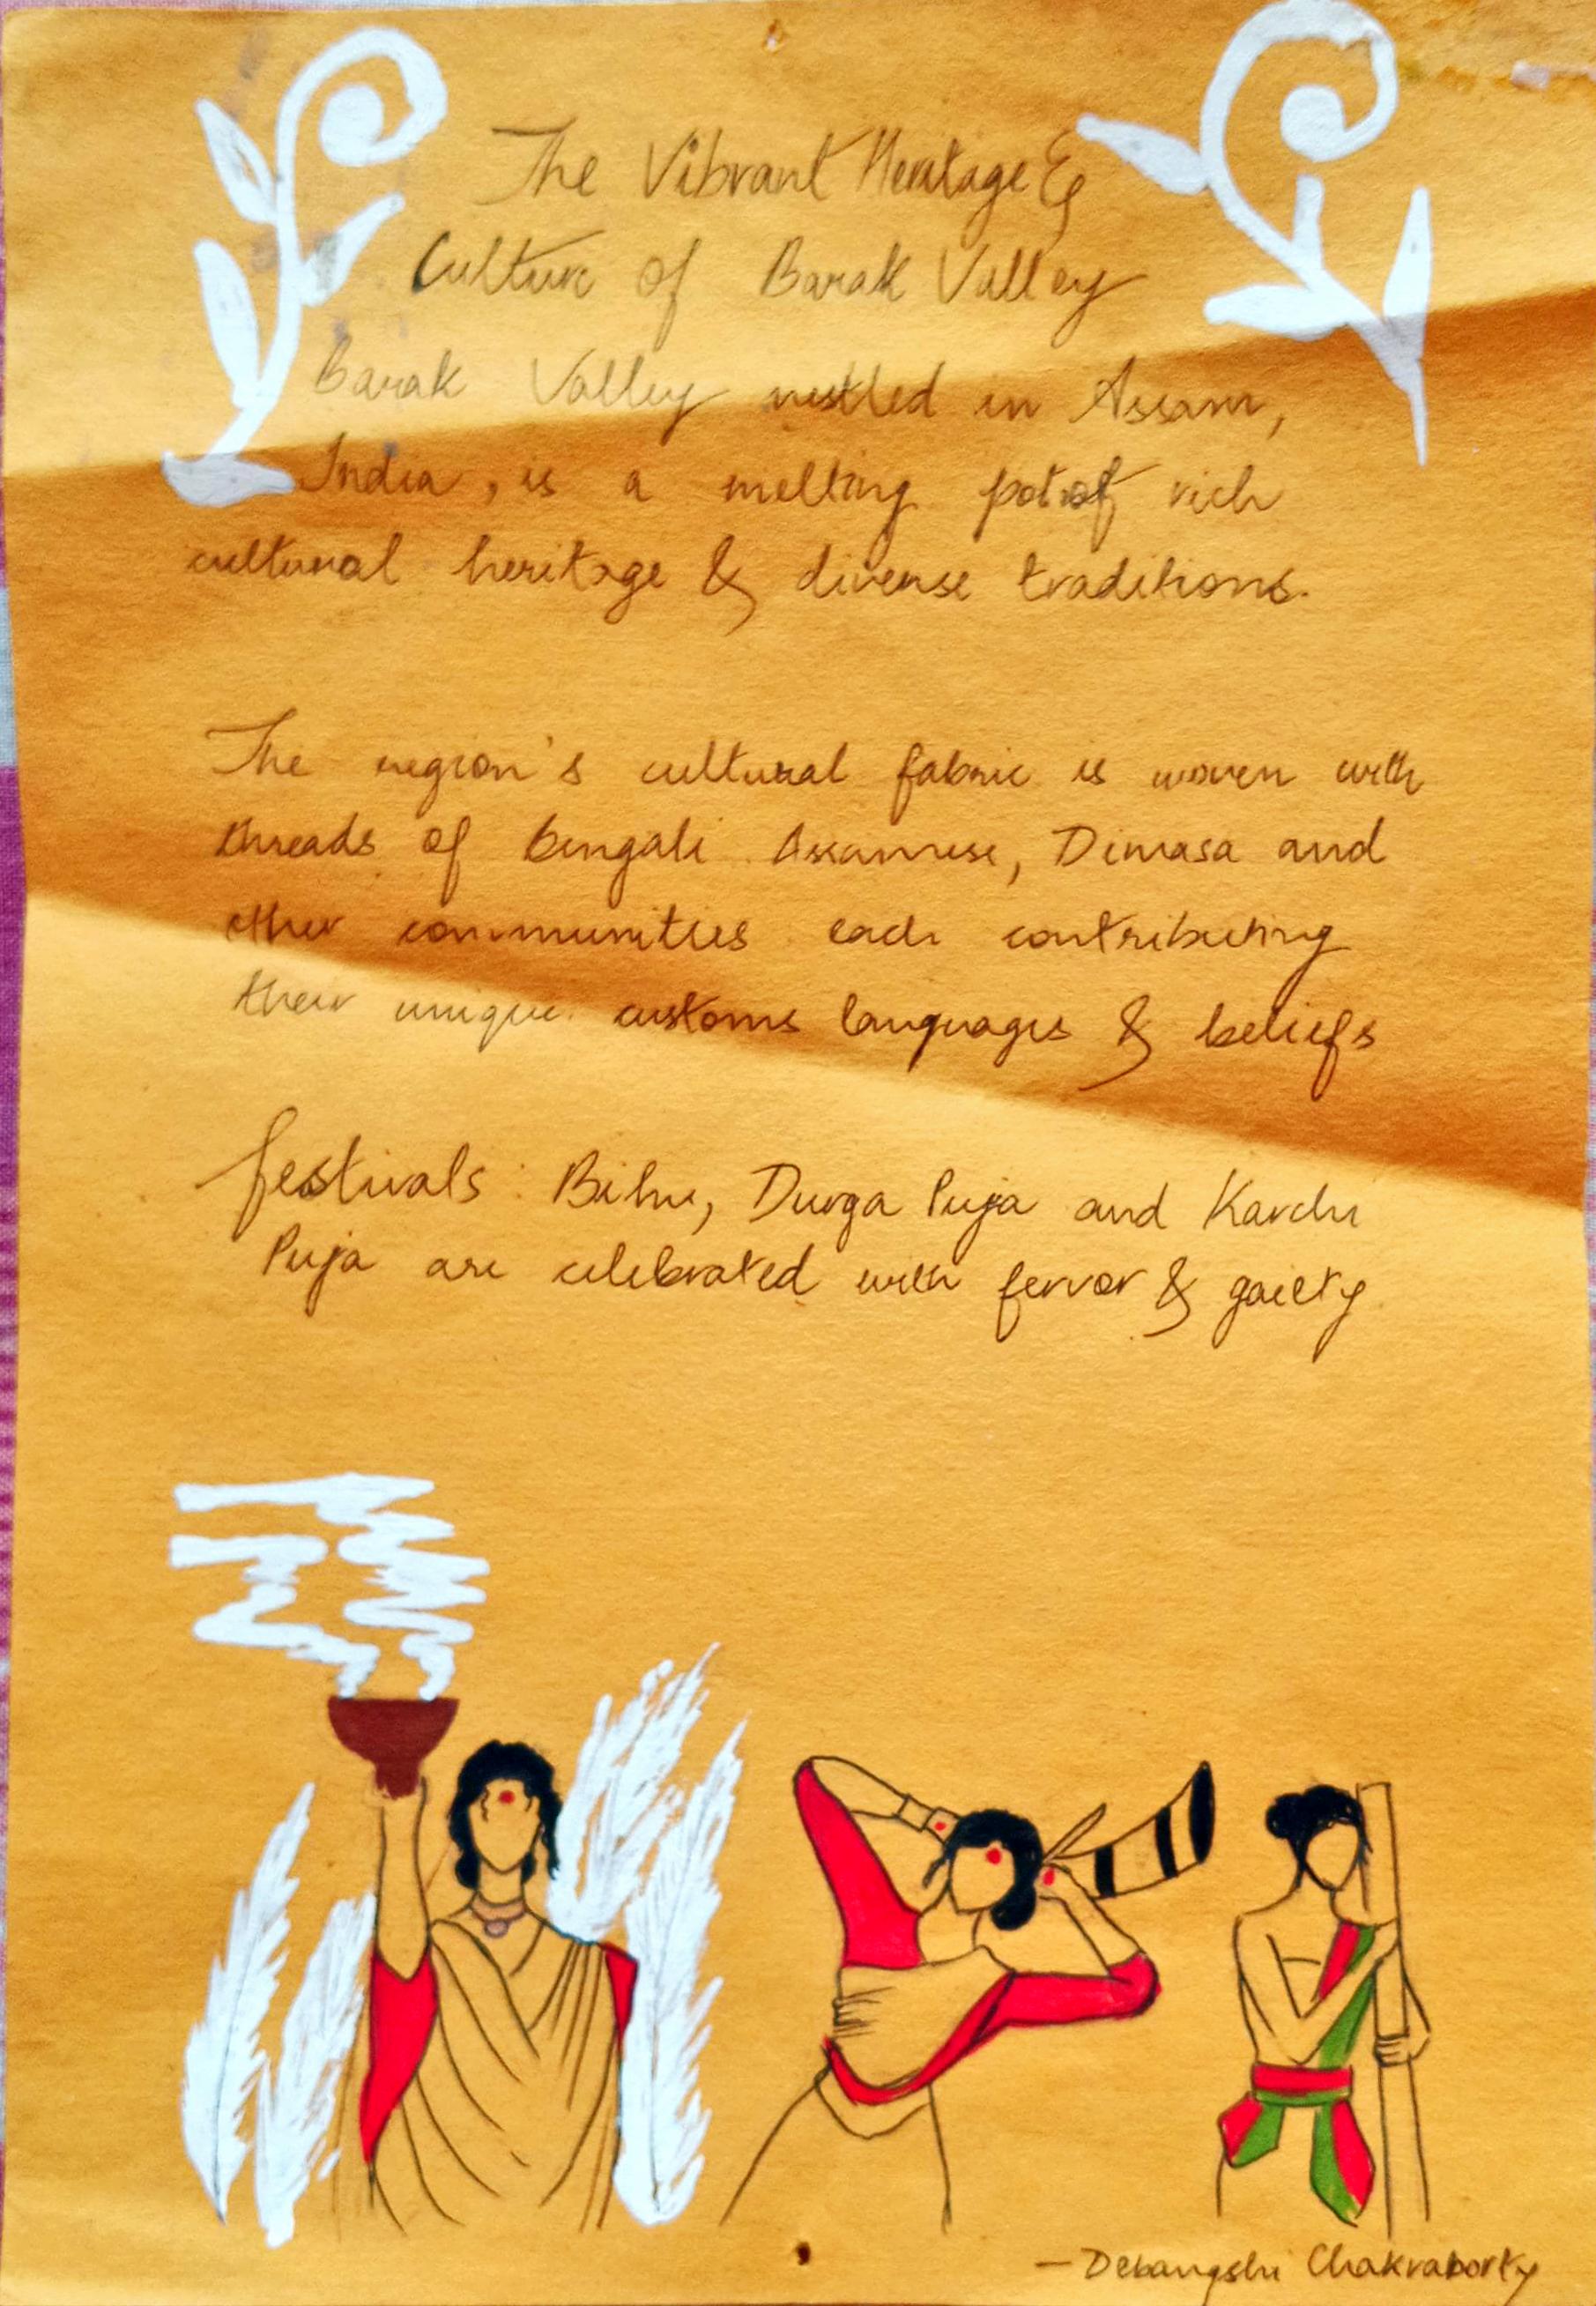 The Vibrant Heritage &
Culture of Barak Valley
Barak Valley nestled in Assam,
India, is a melting pot of rich
cultural heritage & diverse traditions.
The region's cultural fabric is woven with
threads of Bengali Assamese, Dimasa and
other communities each contributing
their unique customs languages & beliefs
festivals: Bihu, Durga Puja and Karchi
Puja are celebrated with fervor & gaiety
—Debangshi Chakraborty